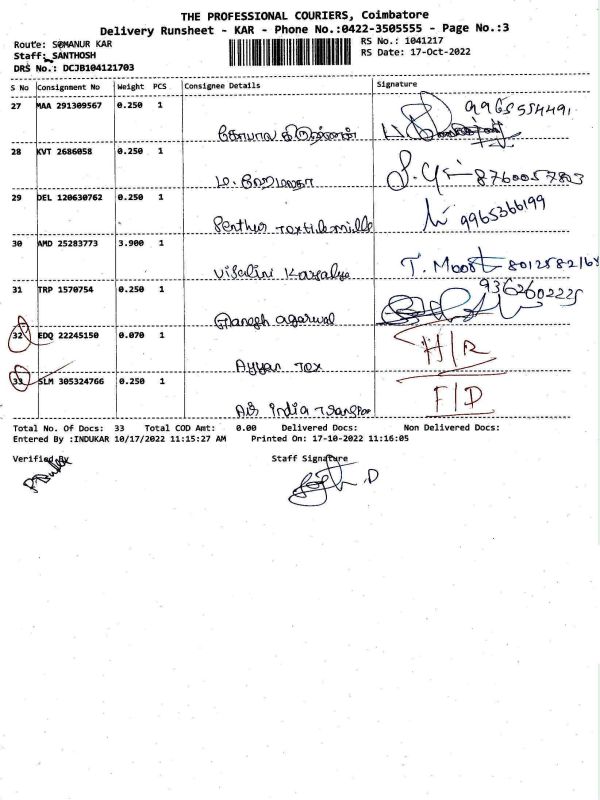 THE PROFESSIONAL COURIERS, Coimbatore
Delivery Runsheet - KAR - Phone No.:0422-3505555 - Page No.:3
Route: SOMANUR KAR
RS No.: 1041217
Staff: SANTHOSH
RS Date: 17-Oct-2022
DRS No.: DCJB104121703
S No Consignment No Weight PCS Consignee Details Signature
27 MAA 291309567 0.250 1 9965554491
28 KVT 2686058 0.250 1 8760057803
29 DEL 120630762 0.250 1 9965366199
Penthur Textile mills
30 AMD 25283773 3.900 1
Visalini T. Moort
31 TRP 1570754 0.250 1 9362602225
Ganesh agarwal
32 EDQ 22245150 0.070 1 H/R
Ayyan Tex
33 SLM 305324766 0.250 1 F/D
Air India Transpor
Total No. Of Docs: 33 Total COD Amt: 0.00 Delivered Docs: Non Delivered Docs:
Entered By :INDUKAR 10/17/2022 11:15:27 AM Printed On: 17-10-2022 11:16:05
Verified By Staff Signature